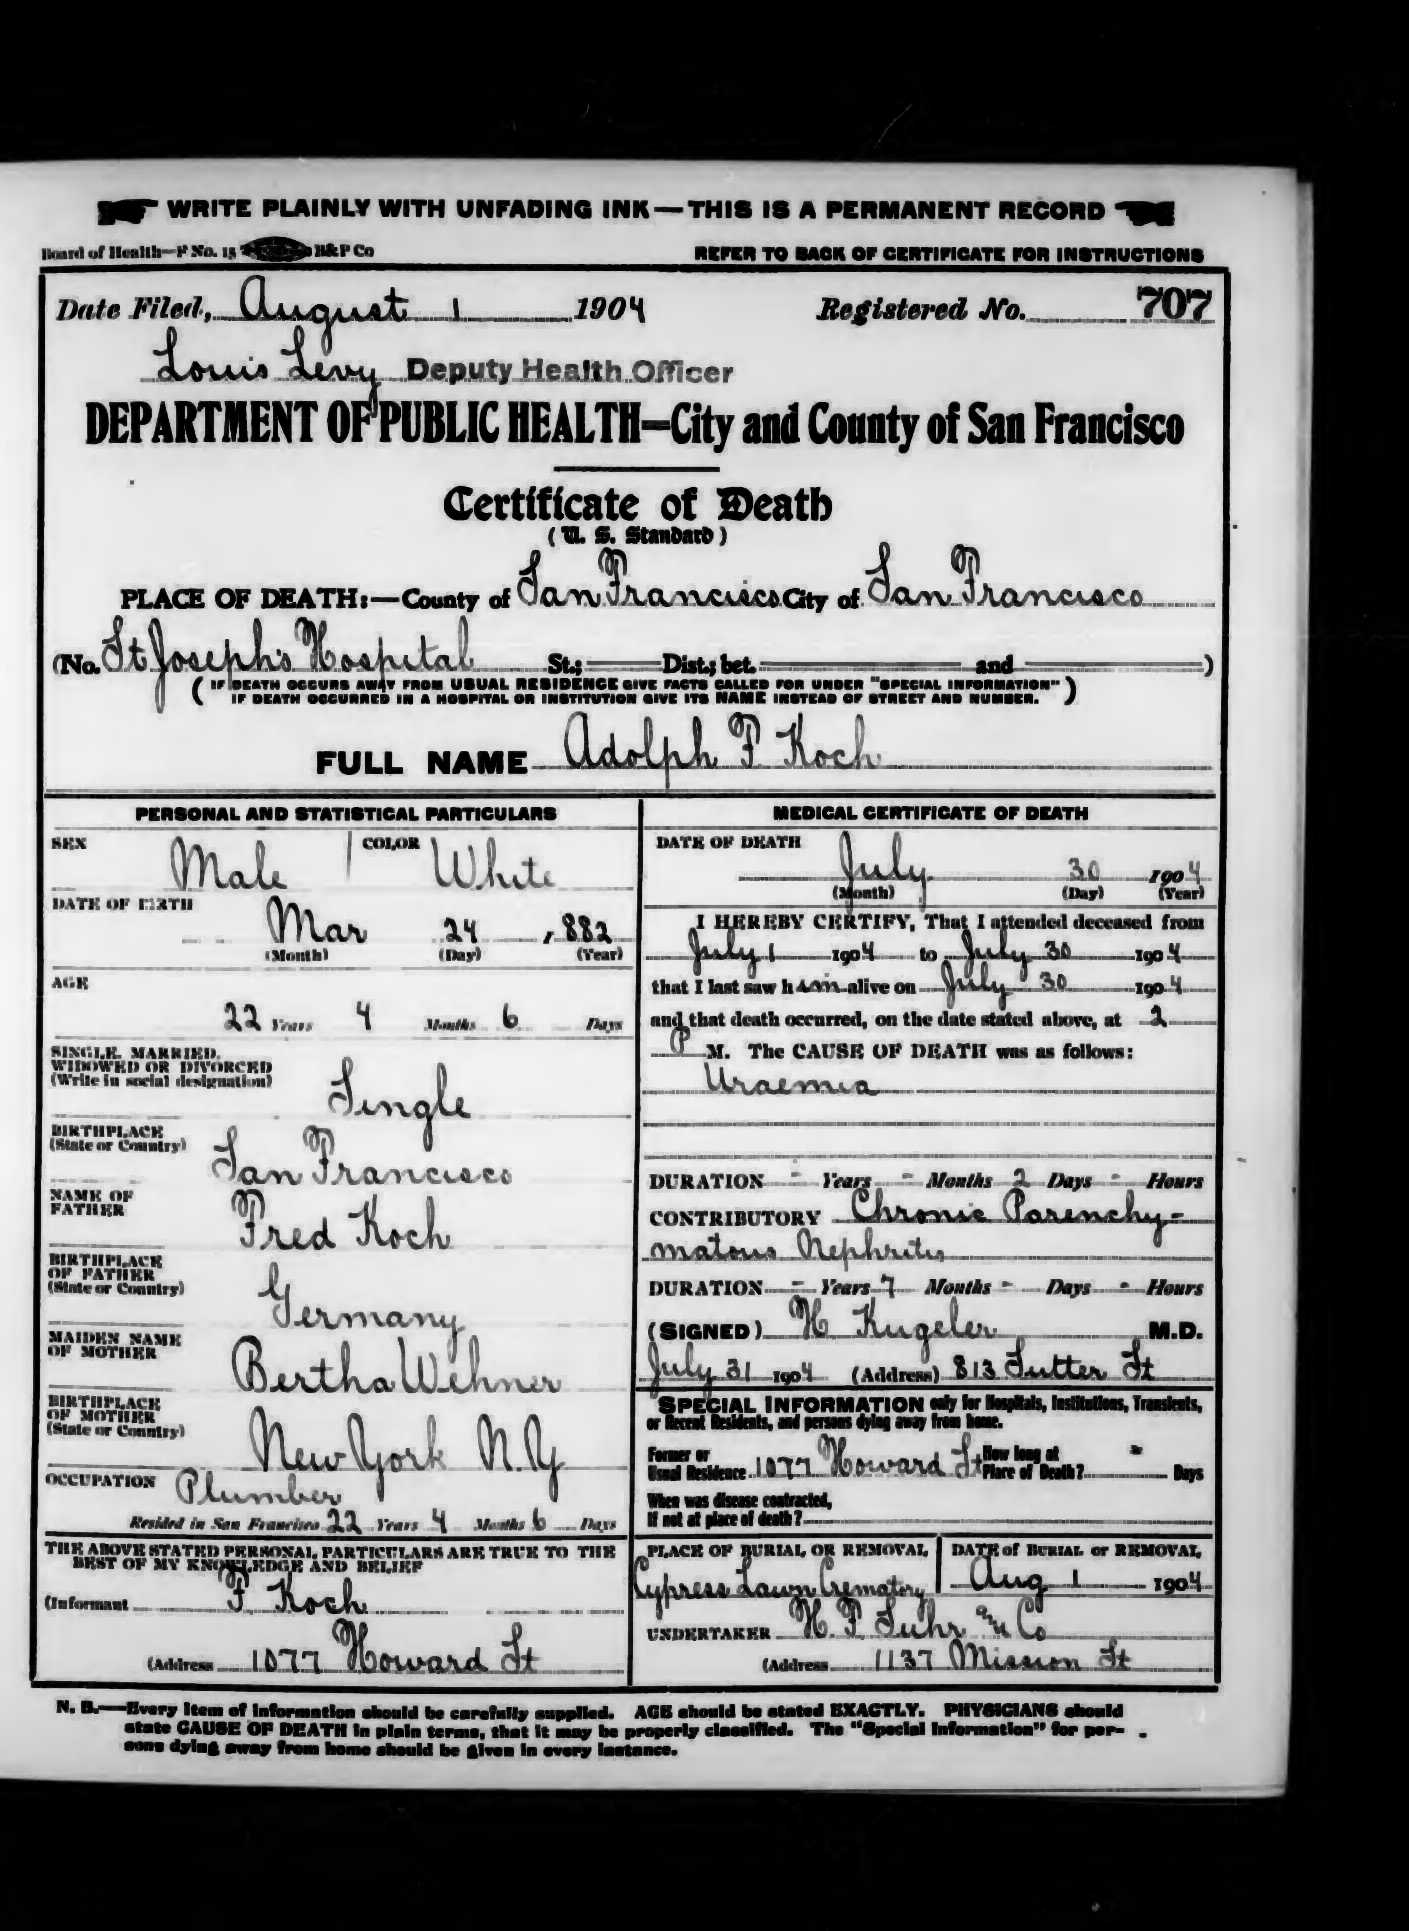 WRITE PLAINLY WITH UNFADING INK—THIS IS A PERMANENT RECORD
Board of Health—F No. 15 B&P Co REFER TO BACK OF CERTIFICATE FOR INSTRUCTIONS
Date Filed, August 1 1904 Registered No. 707
Louis Levy Deputy Health Officer
DEPARTMENT OF PUBLIC HEALTH—City and County of San Francisco
Certificate of Death
(U. S. Standard)
PLACE OF DEATH:—County of San Francisco City of San Francisco
(No. St Joseph's Hospital St.; Dist.; bet. and )
(IF DEATH OCCURS AWAY FROM USUAL RESIDENCE GIVE FACTS CALLED FOR UNDER "SPECIAL INFORMATION"
IF DEATH OCCURRED IN A HOSPITAL OR INSTITUTION GIVE ITS NAME INSTEAD OF STREET AND NUMBER.)
FULL NAME Adolph F Koch
PERSONAL AND STATISTICAL PARTICULARS
SEX Male COLOR White
DATE OF BIRTH
Mar 24, 882
(Month) (Day) (Year)
AGE
22 Years 4 Months 6 Days
SINGLE, MARRIED,
WIDOWED OR DIVORCED
(Write in social designation)
Single
BIRTHPLACE
(State or Country)
San Francisco
NAME OF
FATHER
Fred Koch
BIRTHPLACE
OF FATHER
(State or Country)
Germany
MAIDEN NAME
OF MOTHER
Bertha Wehner
BIRTHPLACE
OF MOTHER
(State or Country)
New York N.Y
OCCUPATION Plumber
Resided in San Francisco 22 Years 4 Months 6 Days
THE ABOVE STATED PERSONAL PARTICULARS ARE TRUE TO THE
BEST OF MY KNOWLEDGE AND BELIEF
(Informant F Koch
(Address 1077 Howard St
MEDICAL CERTIFICATE OF DEATH
DATE OF DEATH
July 30 1904
(Month) (Day) (Year)
I HEREBY CERTIFY, That I attended deceased from
July 1 1904 to July 30 1904
that I last saw him alive on July 30 1904
and that death occurred, on the date stated above, at 2
P M. The CAUSE OF DEATH was as follows:
Uraemia
DURATION - Years - Months 2 Days - Hours
CONTRIBUTORY Chronic Parenchy-
matous Nephritis
DURATION - Years 7 Months - Days - Hours
(SIGNED) H Kugeler M.D.
July 31 1904 (Address) 813 Sutter St
SPECIAL INFORMATION only for Hospitals, Institutions, Transients,
or Recent Residents, and persons dying away from home.
Former or
Usual Residence 1077 Howard St
How long at
Place of Death? Days
When was disease contracted,
If not at place of death?
PLACE OF BURIAL OR REMOVAL
Cypress Lawn Crematory
DATE of BURIAL or REMOVAL
Aug 1 1904
UNDERTAKER H. F. Suhr Co
(Address 1137 Mission St
N. B.—Every item of information should be carefully supplied. AGE should be stated EXACTLY. PHYSICIANS should
state CAUSE OF DEATH in plain terms, that it may be properly classified. The "Special Information" for per-
sons dying away from home should be given in every instance.